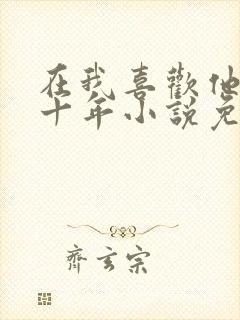 在我喜歡他
十年小說免
齊玄宗